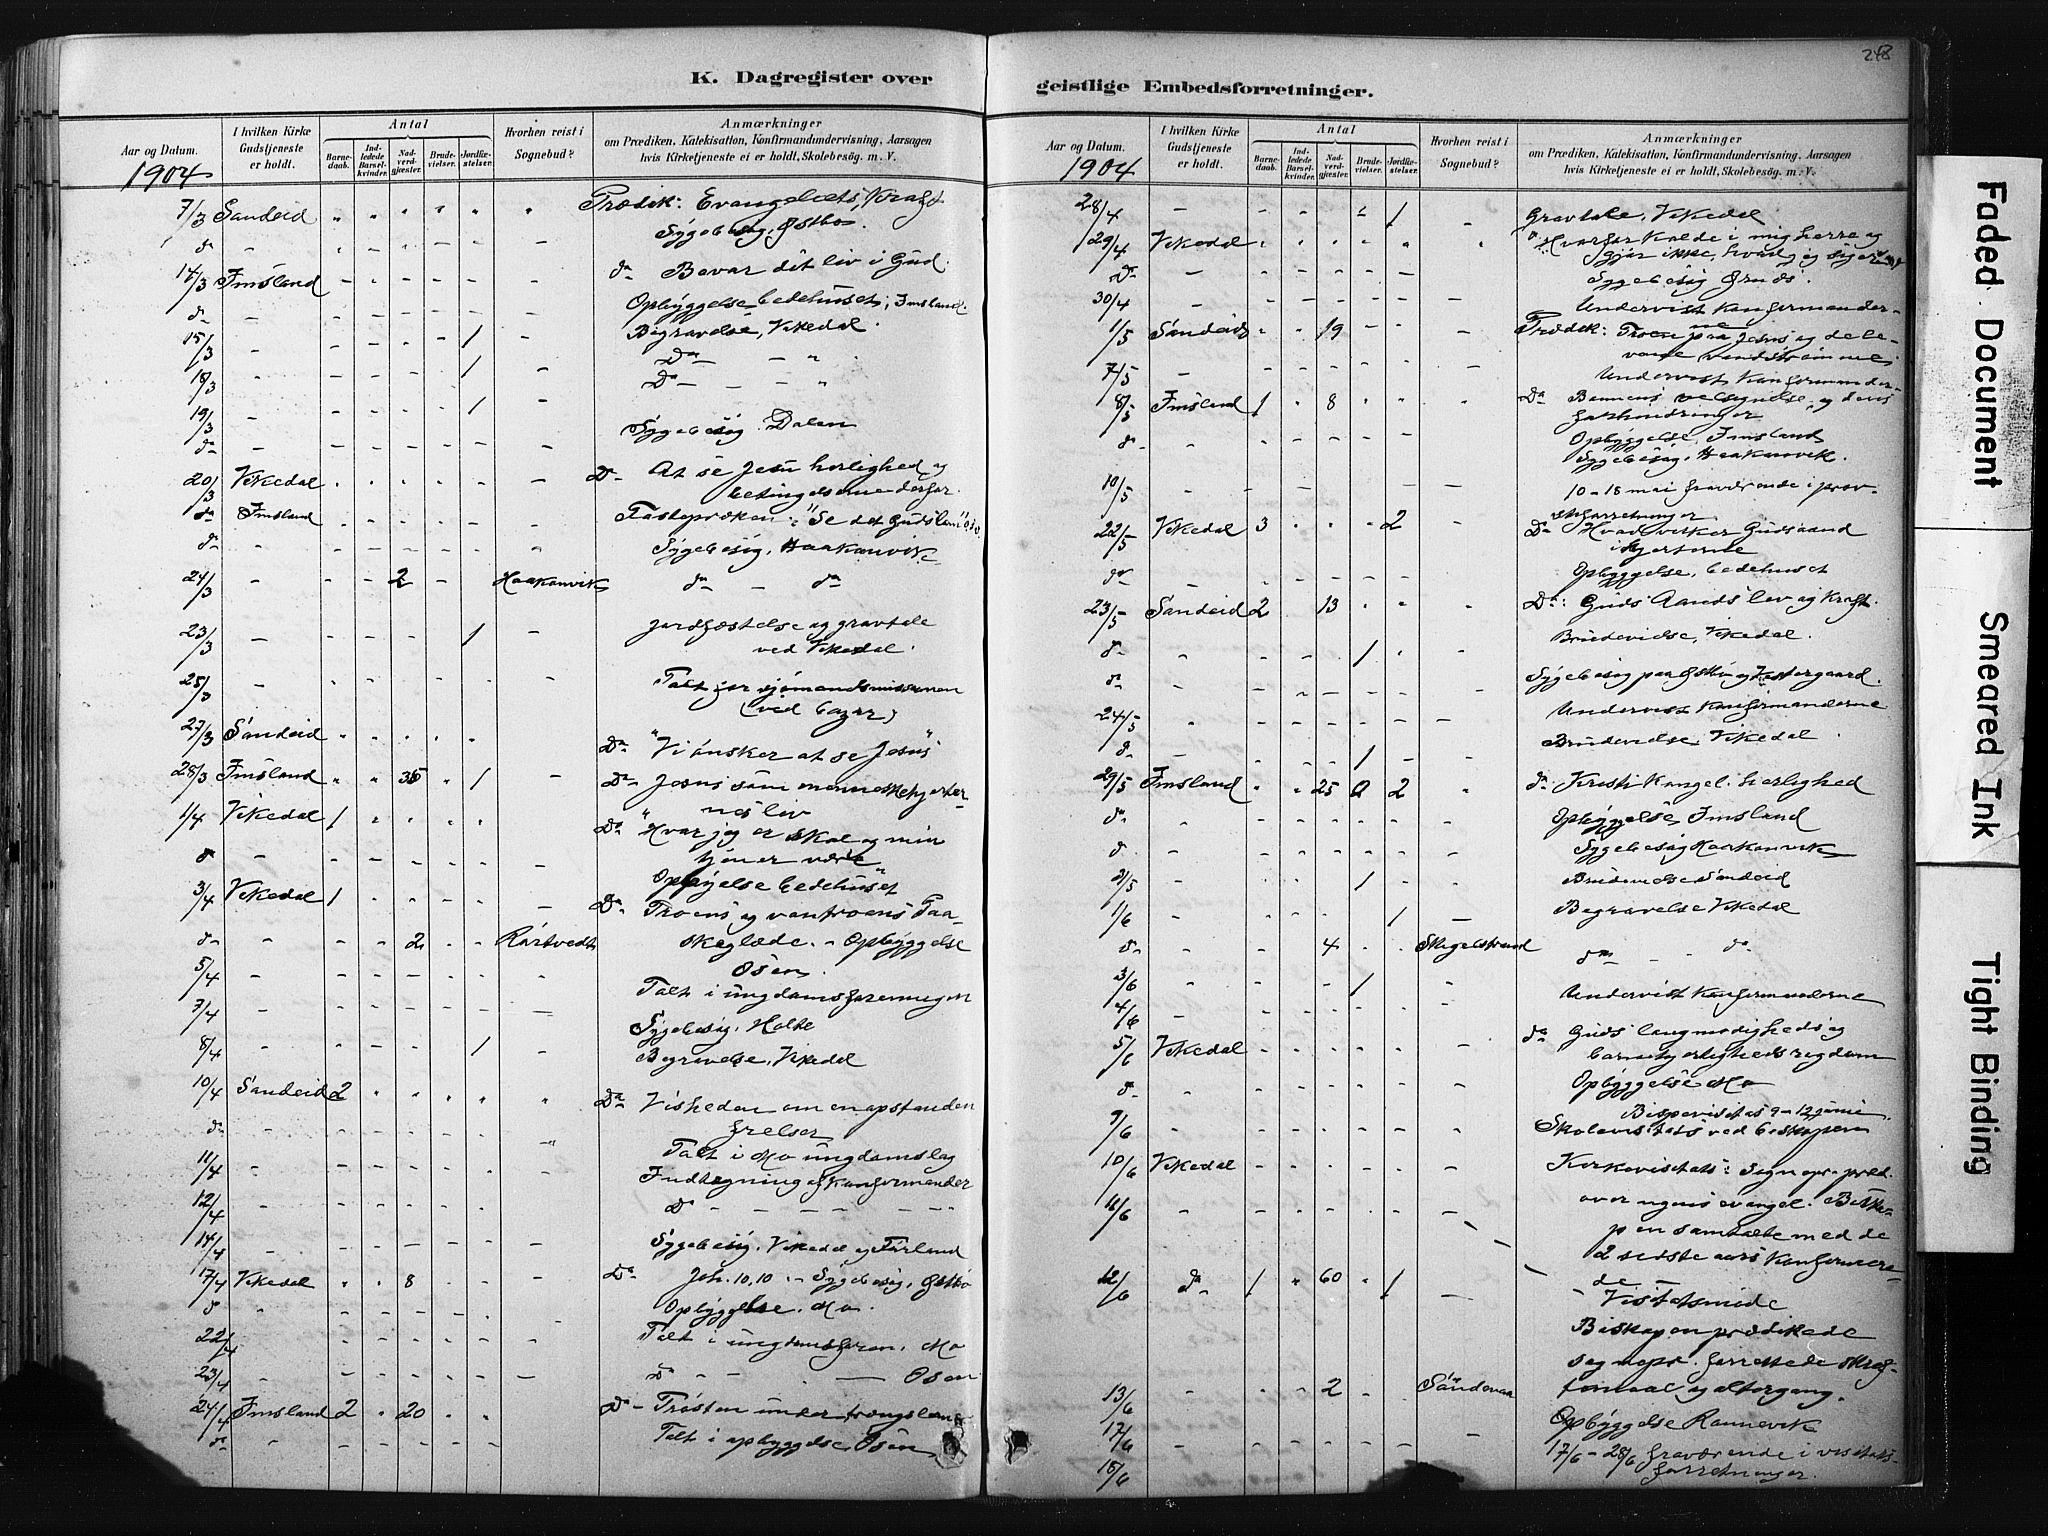 248
K. Dagregister over
Aar og Datum.
I hvilken Kirke Gudstjeneste er holdt.
Antal
Barnedaab.
Indledede Barselkvinder.
Nadverdgjæster.
Brudevielser.
Jordfæstelser.
Hvorhen reist i Sognebud?
Anmærkninger
om Prædiken, Katekisation, Konfirmandundervisning, Aarsagen
hvis Kirketjeneste ei er holdt, Skolebesøg. m. V.
1904
7/3 Sandeid " " " " " " Prædik: Evangeliets Kraft
d° " - - - - - - Sygebesøg, Østbø
14/3 Imsland - - - - - - d° Bevar dit liv i Gud.
d° - Opbyggelse bedehuset, Imsland.
15/3 - - - - - 1 - Begravelse, Vikedal.
18/3 - - - - - 1 - D° - "
19/3 - - - - - 1 - D° - - "
d° - Sygebesøg. Dalen
20/3 Vikedal D° At se Jesu herlighed og
betingelserne derfor.
d° Imsland Fastepræken: "Se det Guds lam"
d° Sygebesøg, Haakonvik
24/3 - - - 2 - Haakonvik d° - d°
23/3 - 1 - Jordfæstelse og gravtale
ved Vikedal.
25/3 - Talt for sjømandsmissionen
(ved bazar)
27/3 Sandeid D° "Vi ønsker at se Jesus"
28/3 Imsland " " 36 " 1 - D° Jesus som menneskehjerter-
nes liv
1/4 Vikedal 1 D° "Hvor jeg er skal og min
tjener være"
d° - Opbyggelse bedehuset
3/4 Vikedal 1 D° Troens og vantroens Paa-
skeglæde. - Opbyggelse
d° " - - 2 - - Rørtvedt
Øsen.
5/4 - Talt i ungdomsforeningen
7/4 - Sygebesøg. Holte
8/4 - 1 - Begravelse, Vikedal
10/4 Sandeid 2 D° Visheden om en opstanden
frelser
d° - Talt i Mo ungdomslag
11/4 - Indtegning af Konfirmander
12/4 - D° - - -
14/4 - Sygebesøg. Vikedal og Førland
17/4 Vikedal " " 8 - - - D° Joh. 10,10. - Sygebesøg, Østbø
d° " Opbyggelse. Mo.
22/4 - Talt i ungdomsforen. Mo
23/4 - D° - - - Øsen
24/4 Imsland 2 " 20 " " D° - Trøsten under trængslerne
d° - Talt i opbyggelse, Øsen
geistlige Embedsforretninger.
Aar og Datum.
I hvilken Kirke Gudstjeneste er holdt.
Antal
Barnedaab.
Indledede Barselkvinder.
Nadverdgjæster.
Brudevielser.
Jordfæstelser.
Hvorhen reist i Sognebud?
Anmærkninger
om Prædiken, Katekisation, Konfirmandundervisning, Aarsagen
hvis Kirketjeneste ei er holdt, Skolebesøg. m. V.
1904
28/4 - 1 - Gravtale, Vikedal
29/4 Vikedal "Hvorfor kalde i mig herre og
gjør ikke, hvad
D° - Sygebesøg
30/4 - Undervist Konfirmander-
ne
1/5 Sandeid " " 19 - - - Prædik: Troen paa Jesus og de le-
vende vandstrømme.
7/5 - Undervist Konfirmander-
8/5 Imsland 1 " 8 D° Bønnens velsignelse og dens
forhindringer
d° " Opbyggelse, Imsland
Sygebesøg, Haakonvik.
10/5 - 10-18 mai fraværende i prov-
stiforretninger
22/5 Vikedal 3 " " " 2 - D° Hvad virker Guds aand
i hjerterne
d° - Opbyggelse, bedehuset
23/5 Sandeid 2 13 D°: Guds Aands liv og kraft.
d° " 1 - Brudevielse, Vikedal.
d° " Sygebesøg paa Østbø og Vestergaard.
24/5 - Undervist Konfirmanderne
d° - 1 - Brudevielse, Vikedal.
29/5 Imsland " " 25 0 2 " d° Kristi kongel. herlighed
d° " Opbyggelse, Imsland
d° " Sygebesøg Haakonvik
31/5 " 1 " Brudevielse Sandeid
1/6 " 1 - Begravelse Vikedal
d° " 4 Skigelstrand d° - d°
3/6 " 1 "
4/6 - Undervist Konfirmanderne
5/6 Vikedal d° Guds langmodigheds og
barmhjertigheds rigdom
d° " Opbyggelse Mo
Bispevisitas 9-12 juni.
9/6 " Skolevisitats ved biskopen
10/6 Vikedal Kirkevisitats: Sogn opr. præd.
11/6 " over ugens evangel. Bisko-
pen samtalte med de
2 sidste aars Konfirmere-
de
12/6 d° 1 " 60 " 1 - - Visitatsmøde
Biskopen prædikede
sognepr. forrettede skrif-
13/6 " 2 Søndenaa temaal og altergang.
17/6 - Opbyggelse Rønnevik
18/6 17/6 - 28/6 fraværende i visitats-
forretninger.
Faded Document
Smeared Ink
Tight Binding